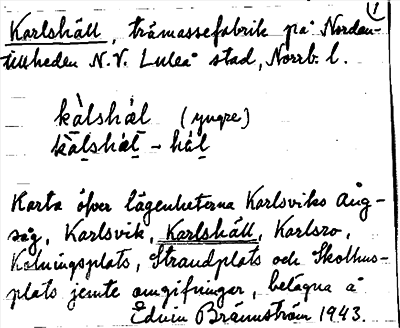 1
Karlshäll, trämassefabrik på Nordan-
tillheden N.V. Luleå stad, Norrb. l.
kàlshäl (yngre)
kàlshäl - häl
Karta öfver lägenheterna Karlsviks Ång-
såg, Karlsvik, Karlshäll, Karlsro,
Kolningsplats, Strandplats och Skolhus-
plats jemte omgifningar, belägna å
Edvin Brännström 1943.